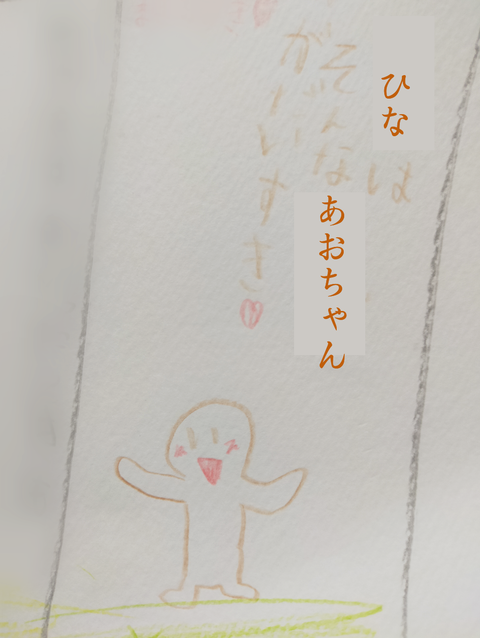 ひなは
そんなあおちゃん
がだいすき♡